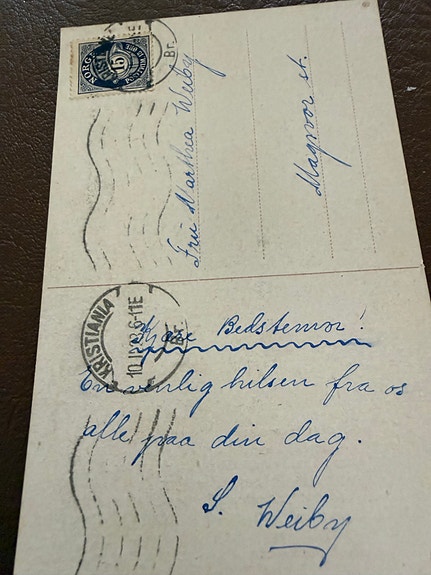 NORGE
15
Br.
Fru Marthea Weiby
Magnor st.
KRISTIANIA
Br.
Kjære Bedstemor!
En venlig hilsen fra os
alle paa din dag.
S. Weiby